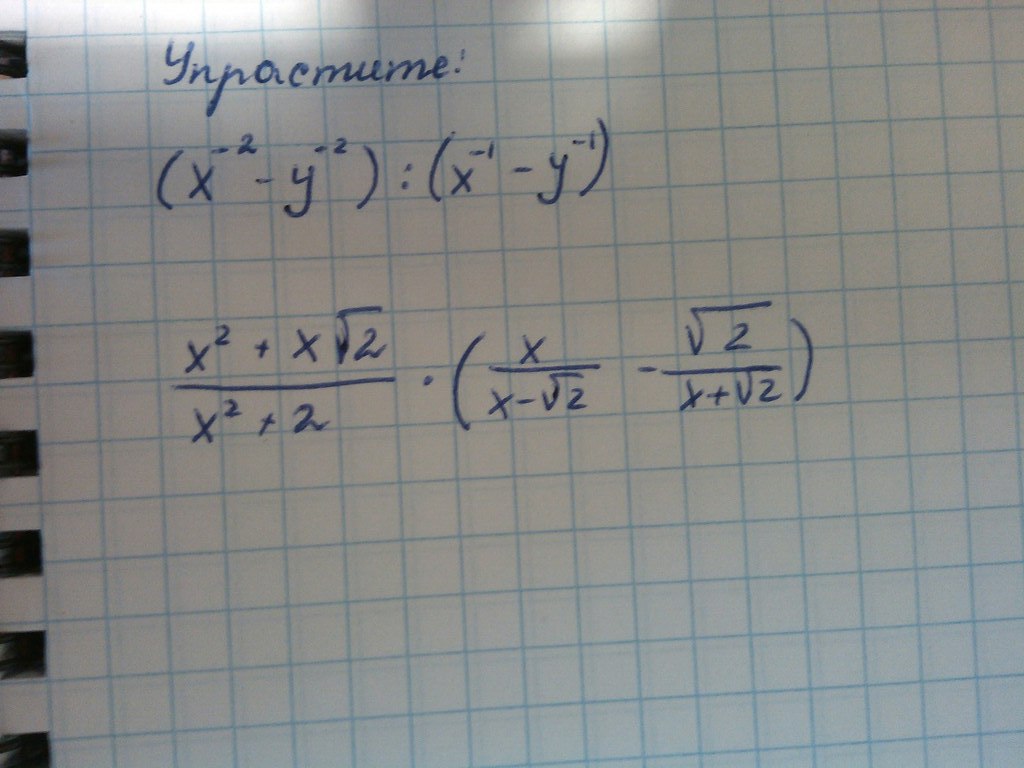 Упрастите:
(x⁻² - y⁻²) : (x⁻¹ - y⁻¹)
\frac{x² + x√2}{x² + 2} · (\frac{x}{x-√2} - \frac{√2}{x+√2})